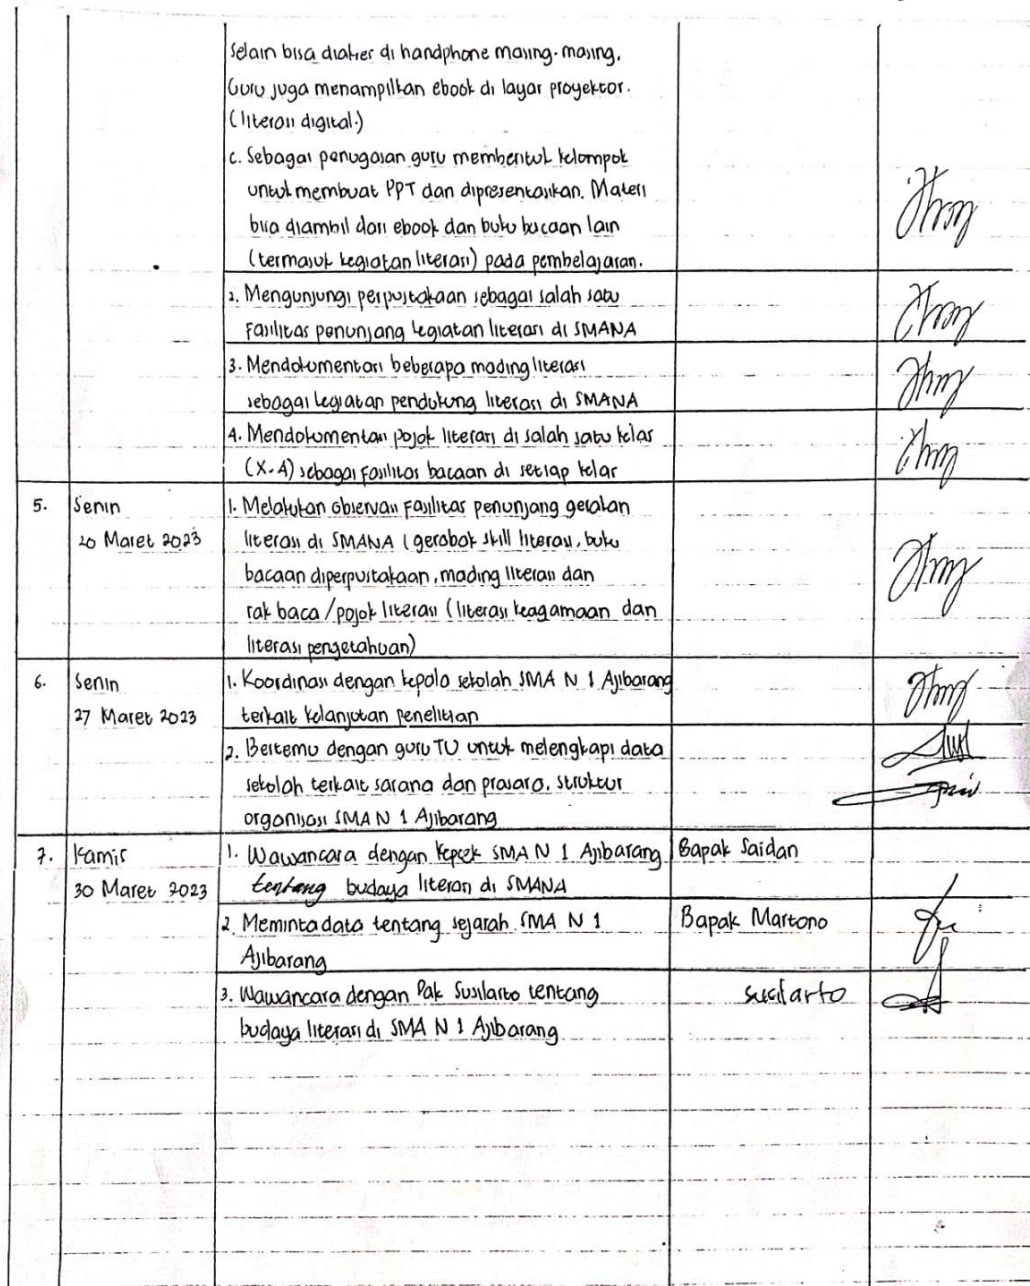 selain bisa diakses di handphone masing-masing.
Guru juga menampilkan ebook di layar proyektor.
(literasi digital.)
c. Sebagai penugasan guru membentuk kelompok
untuk membuat PPT dan dipresentasikan. Materi
bisa diambil dari ebook dan buku bacaan lain
(termasuk kegiatan literasi) pada pembelajaran.
2. Mengunjungi perpustakaan sebagai salah satu
fasilitas penunjang kegiatan literasi di SMANA
3. Mendokumentasi beberapa mading literasi
sebagai kegiatan pendukung literasi di SMANA
4. Mendokumentasi pojok literasi di salah satu kelas
(X-A) sebagai fasilitas bacaan di setiap kelas
5. Senin 1. Melakukan observasi fasilitas penunjang gerakan
20 Maret 2023 literasi di SMANA (gerobak skill literasi, buku
bacaan diperpustakaan, mading literasi dan
rak baca/pojok literasi (literasi keagamaan dan
literasi pengetahuan)
6. Senin 1. Koordinasi dengan kepala sekolah SMA N 1 Ajibarang
27 Maret 2023 terkait kelanjutan penelitian
2. Bertemu dengan guru TU untuk melengkapi data
sekolah terkait sarana dan prasara, struktur
organisasi SMA N 1 Ajibarang
7. Kamis 1. Wawancara dengan kepsek SMA N 1 Ajibarang Bapak Saidan
30 Maret 2023 tentang budaya literasi di SMANA
2. Meminta data tentang sejarah SMA N 1 Bapak Martono
Ajibarang
3. Wawancara dengan Pak Susilarto tentang Susilarto
budaya literasi di SMA N 1 Ajibarang